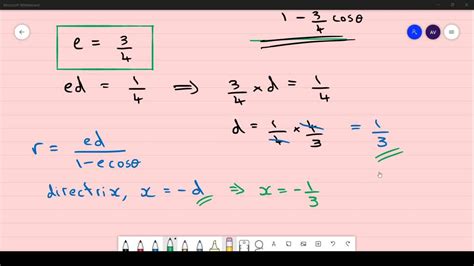 Microsoft Whiteboard
1 - 3/4 cosθ
e = 3/4
AV
ed = 1/4 ⟹ 3/4 × d = 1/4
d = 1/4 × 4/3 = 1/3
r = ed/1-ecosθ
directrix, x = -d ⇒ x = -1/3